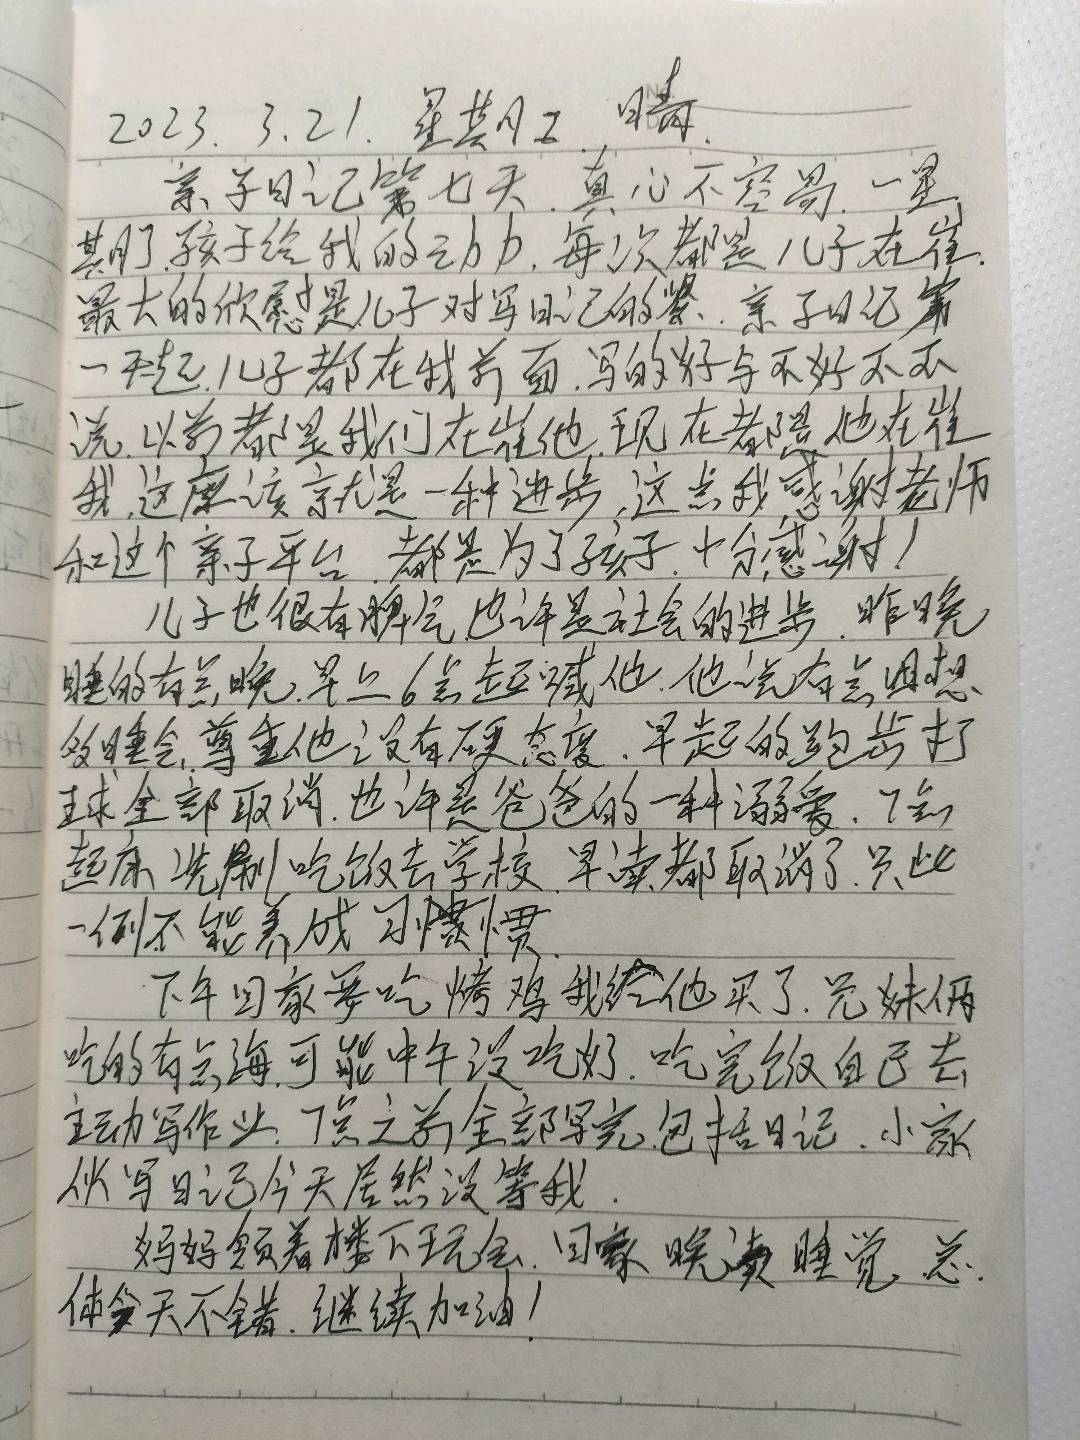 2023. 3.21. 星期二 晴.
亲子日记第七天.真心不容易.一星
期了.孩子给我的动力.每次都是儿子在崔.
最大的欣慰是儿子对写日记的紧.亲子日记第
一天起.儿子都在我前面.写的好与不好不不
说.以前都是我们在崔他.现在都是他在崔
我.这应该就是一种进步.这点我感谢老师
和这个亲子平台.都是为了孩子.十分感谢!
儿子也很有脾气也许是社会的进步.昨晚
睡的有点晚.早上6点起喊他.他说有点困想
多睡会,尊重他没有硬态度.早起的跑步打
球全部取消.也许是爸爸的一种溺爱.7点
起床洗刷吃饭去学校.早读都取消了.只此
一例不能养成习惯.
下午回家要吃烤鸡我给他买了.兄妹俩
吃的有点海.可能中午没吃好.吃完饭自己去
主动写作业.7点之前全部写完.包括日记.小家
伙写日记今天居然没等我.
妈妈领着楼下玩会.回家晚读睡觉.总.
体今天不错.继续加油!